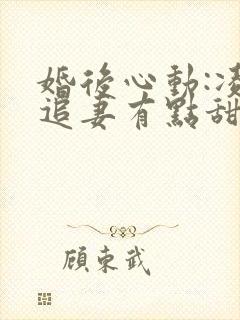 婚後心動:凌
追妻有點甜
顧東武